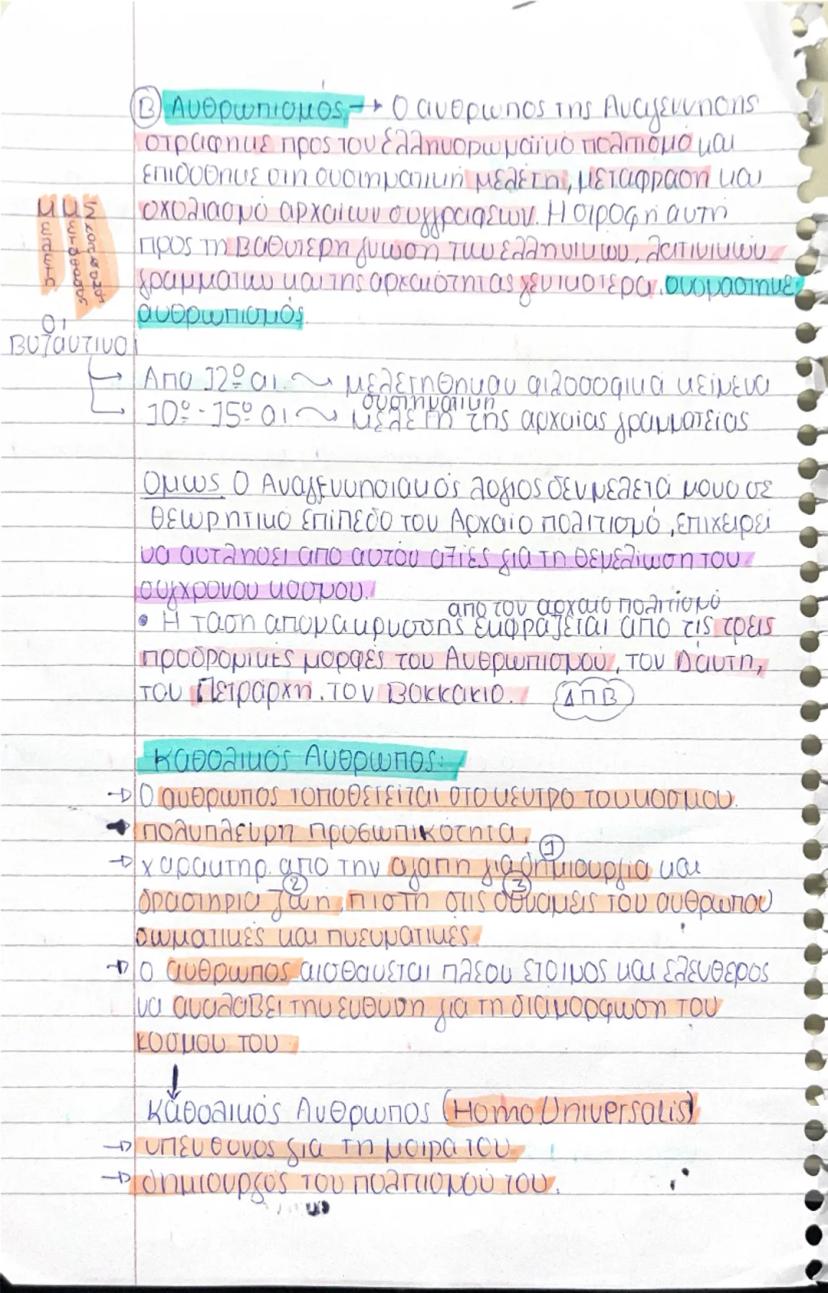 Β Ανθρωπισμός → Ο ανθρωπος της Αναγέννησης
στράφηκε προς τον Ελληνορωμαϊκό πολιτισμό και
επιδόθηκε στη συστηματική μελέτη, μετάφραση και
σχολιασμό αρχαίων συγγραφέων. Η στροφή αυτή
προς τη βαθύτερη γνώση των ελληνικών, λατινικών
γραμμάτων και της αρχαιότητας γενικότερα, ονομάστηκε
ανθρωπισμός.
Μελέτη
Μετάφραση
Σχολιασμός
Οι
Βυζαντινοί
→ Από 12º αι. ⤳ μελετήθηκαν φιλοσοφικά κείμενα
συστηματική
→ 10º - 15º αι ⤳ μελέτη της αρχαίας γραμματείας
Όμως Ο Αναγεννησιακός λόγιος δεν μελετά μόνο σε
θεωρητικό επίπεδο τον Αρχαίο πολιτισμό, επιχειρεί
να αντλήσει από αυτόν αξίες για τη θεμελίωση του
σύγχρονου κόσμου.
απο τον αρχαίο πολιτισμό
• Η τάση απομάκρυνσης εκφράζεται από τις τρεις
προδρομικές μορφές του Ανθρωπισμού, τον Δάντη,
τον Πετράρχη, τον Βοκκάκιο. ΔΠΒ
Καθολικός Άνθρωπος:
→ Ο άνθρωπος τοποθετείται στο κέντρο του κόσμου.
→ πολύπλευρη προσωπικότητα,
→ χαρακτηρ. από την αγάπη για ① δημιουργία και
δραστήρια ② ζωή, πίστη στις ③ δυνάμεις του ανθρώπου
σωματικές και πνευματικές
→ ο άνθρωπος αισθάνεται πλέον έτοιμος και ελεύθερος
να αναλάβει την ευθύνη για τη διαμόρφωση του
κόσμου του
↓
Καθολικός Άνθρωπος (Homo Universalis)
→ υπεύθυνος για τη μοίρα του
→ δημιουργός του πολιτισμού του.